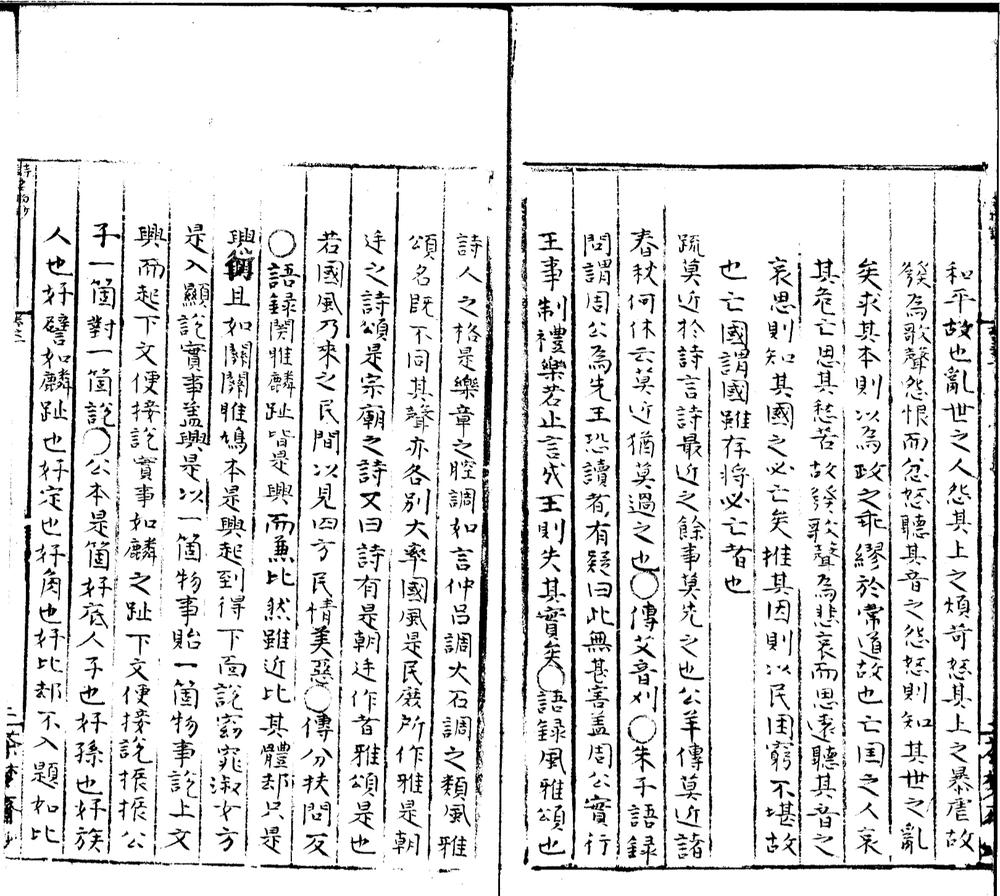 和平故也亂世之人怨其上之煩苛怒其上之暴虐故
發為歌聲怨恨而忿怒聽其音之怨怒則知其世之亂
矣求其本則以為政之乖繆於常道故也亡国之人哀
其危亡思其愁苦故發歌聲為悲哀而思遠聽其音之
哀思則知其國之必亡矣推其因則以民困窮不堪故
也亡國謂國雖存将必亡者也
疏莫近於詩言詩最近之餘事莫先之也公羊傳莫近諸
春秋何休云莫近猶莫過之也○傳艾音刈○朱子語録
問謂周公為先王恐讀者有疑曰此無甚害盖周公實行
王事制禮樂若止言成王則失其實矣○語録風雅頌也
詩人之格是樂章之腔調如言仲吕調大石調之類風雅
頌名既不同其聲亦各别大率國風是民庶所作雅是朝
廷之詩頌是宗廟之詩又曰詩有是朝廷作者雅頌是也
若國風乃采之民間以見四方民情美惡○傳分扶問反
○語録関雎麟趾皆是興而兼比然雖近比其體却只是
興且如關關雎鳩本是興起到得下面說窈窕淑女方
是入顯說實事盖興是以一箇物事貽一箇物事說上文
興而起下文便接說實事如麟之趾下文便接說振振公
子一箇對一箇說○公本是箇好底人子也好孫也好族
人也好譬如麟趾也好定也好角也好比却不入題如比